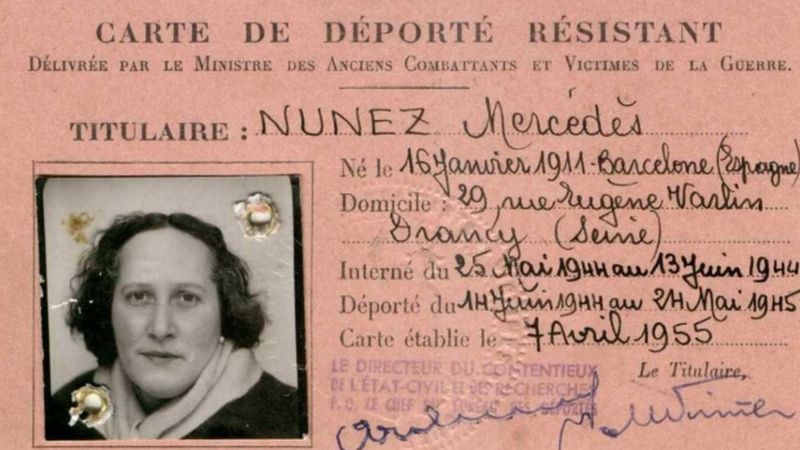 CARTE DE DÉPORTÉ RÉSISTANT
DÉLIVRÉE PAR LE MINISTRE DES ANCIENS COMBATTANTS ET VICTIMES DE LA GUERRE.
TITULAIRE : NUNEZ Mercédès
Né le 16 Janvier 1911 - Barcelone (Espagne)
Domicile : 29 rue Eugène Varlin
Drancy (Seine)
Interné du 25 Mai 1944 au 13 Juin 1944
Déporté du 14 Juin 1944 au 24 Mai 1945
Carte établie le 7 Avril 1955
LE DIRECTEUR DU CONTENTIEUX
DE L'ÉTAT-CIVIL ET DES RECHERCHES
P. O. LE CHEF DES DÉPORTÉS
Le Titulaire,